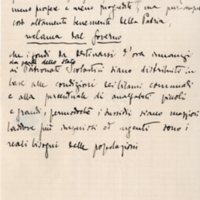 meno profes e meno profeta, ma
così altamente benemerita della Patria,
reclama dal Governo
che i fondi da destinarsi d'ora innanzi
da parte dello Stato
ai Patronati Scolastici siano distribuiti in
base alle condizioni comunali
e alla percentuale di analfabeti piccoli
e grandi, permodoché i sussidi siano maggiori
laddove più urgenti sono i
reali bisogni delle popolazioni